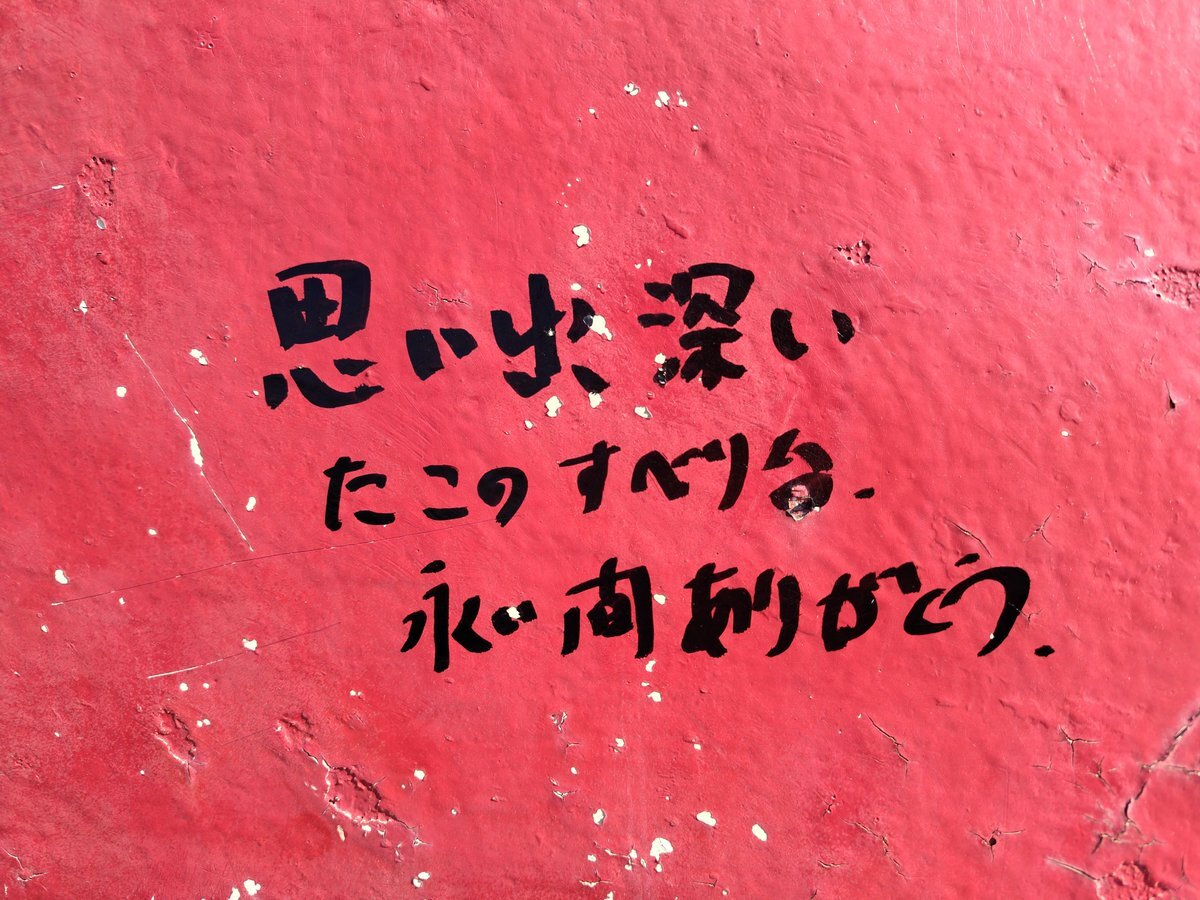 思い出深い
たこのすべり台.
永い間ありがとう.